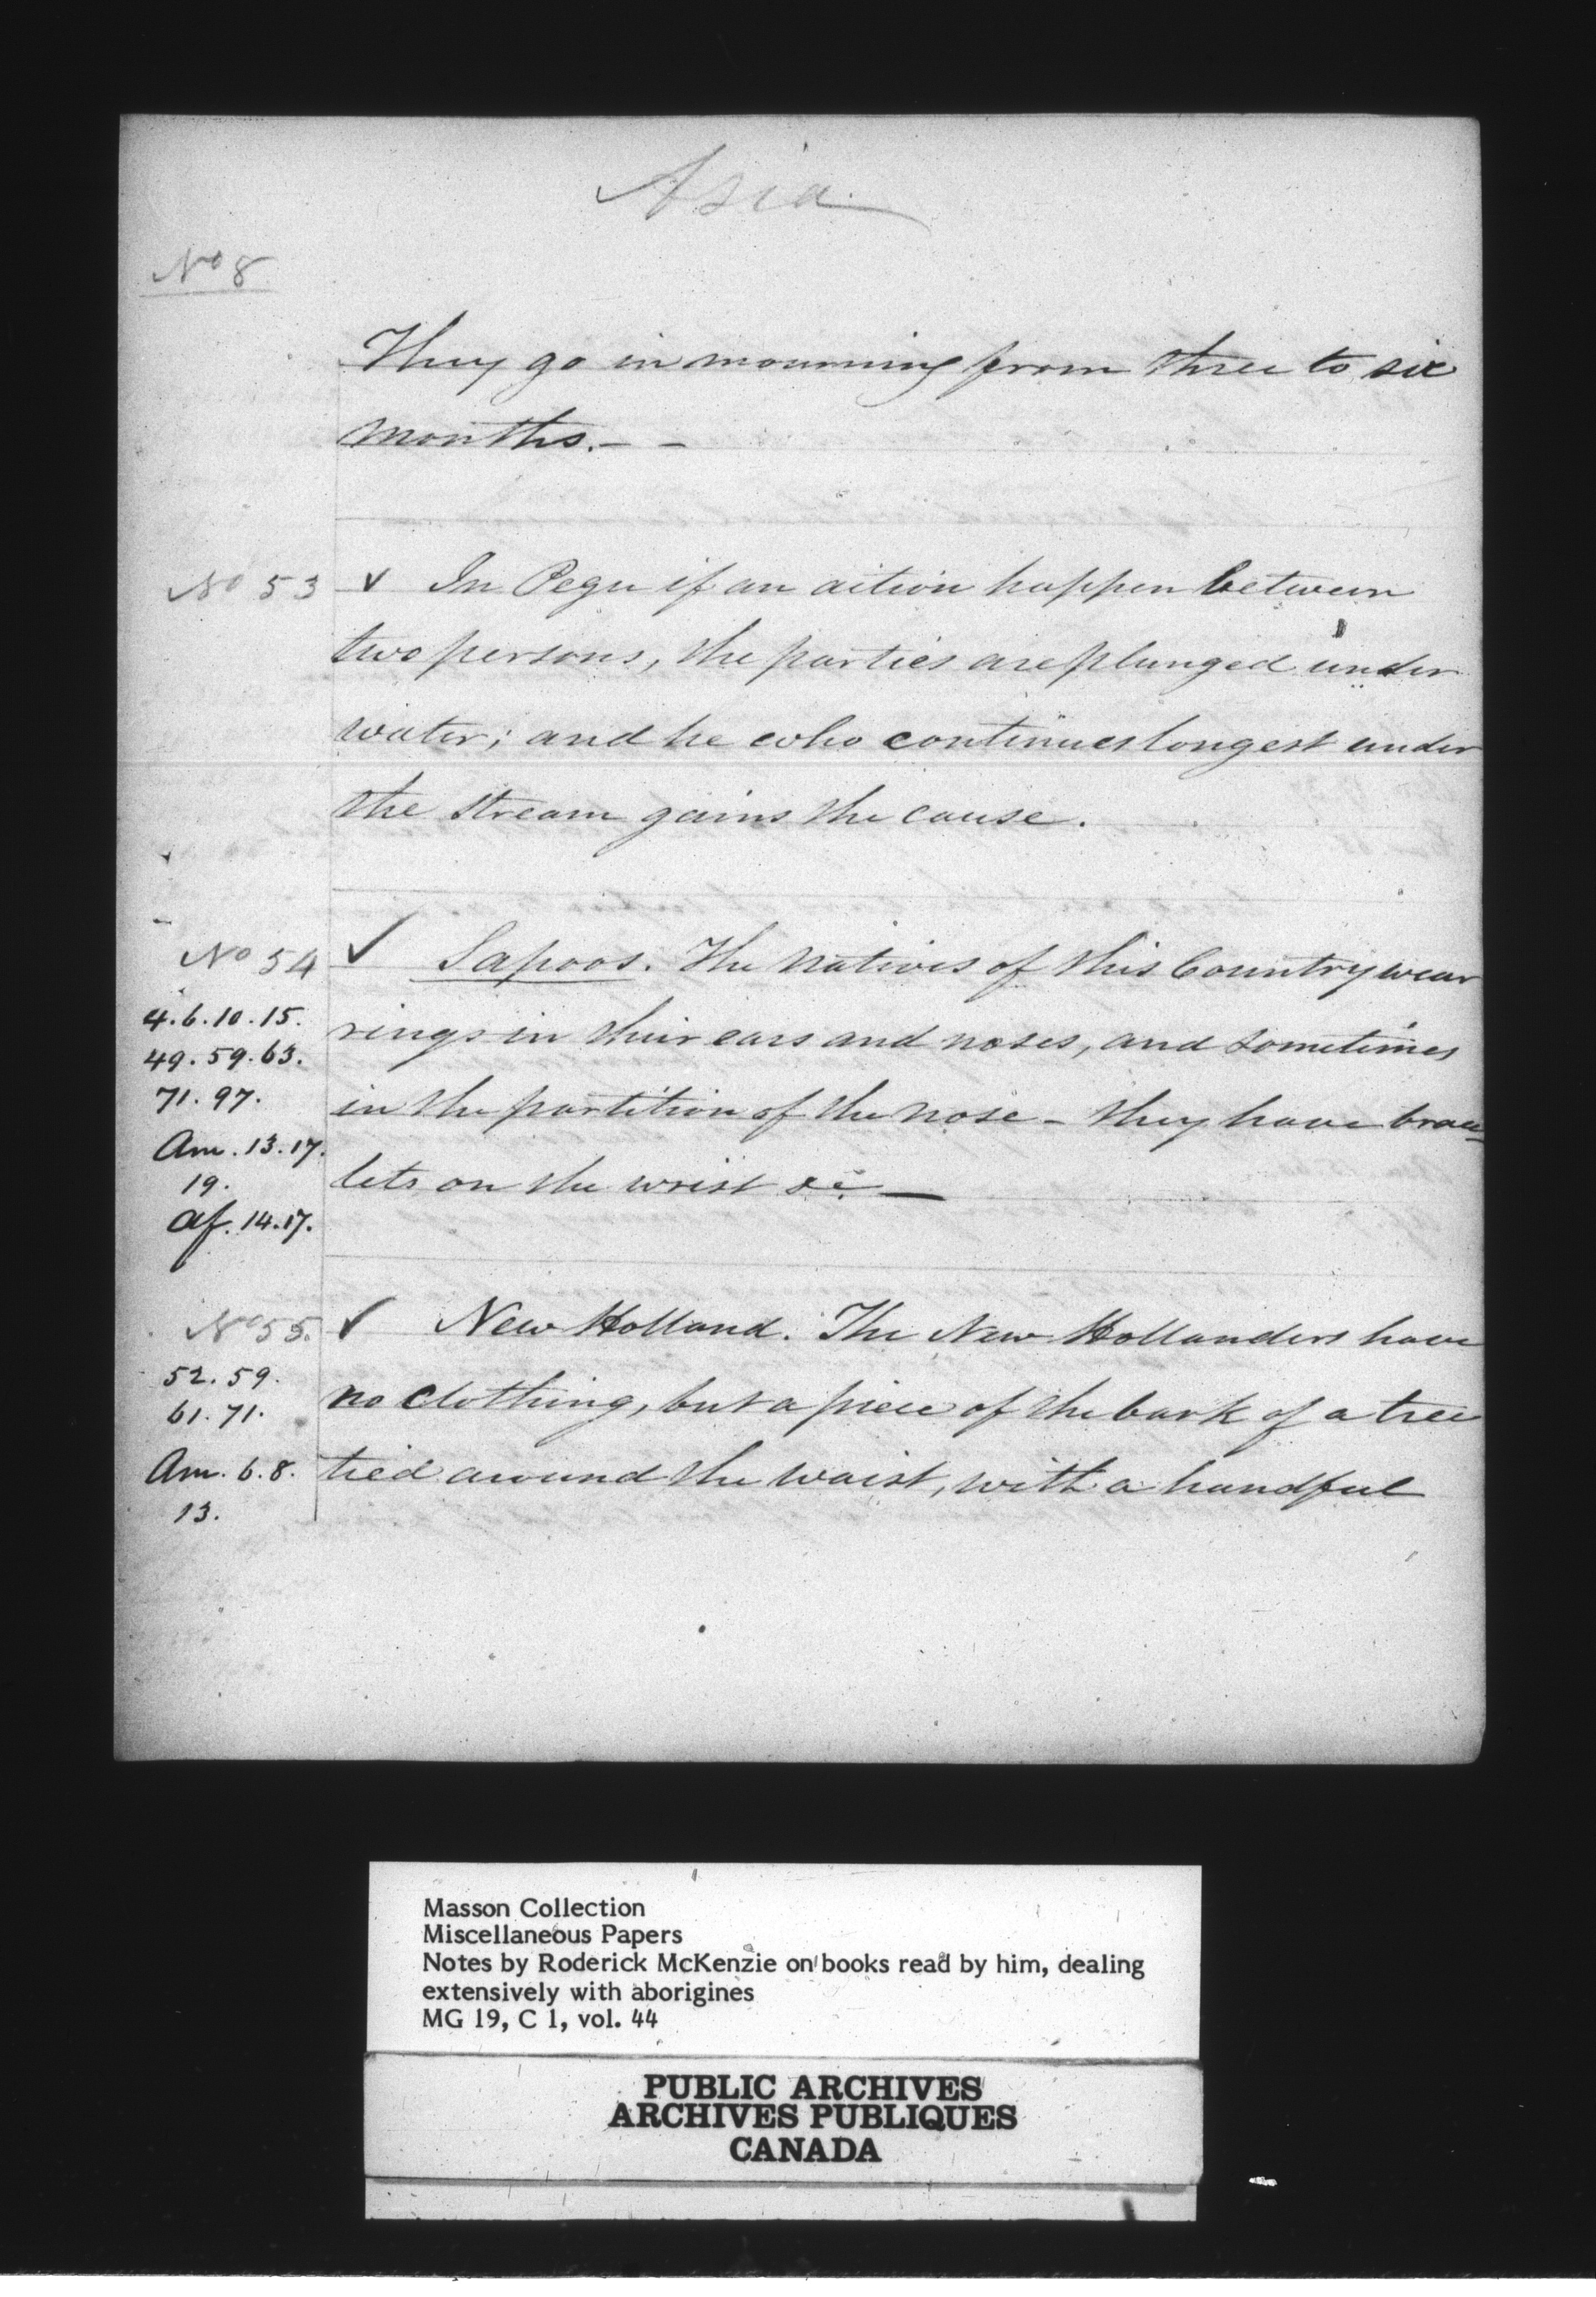 Asia
No 8
They go in mourning from three to six
months. - -
No 53 ✓ In Pegu if an action happen between
two persons, the parties are plunged under
water; and he who continues longest under
the stream gains the cause.
No 54 ✓ Sapoos. The natives of this Country wear
4. 6. 10. 15.
rings in their ears and noses, and sometimes
49. 59. 63.
71. 97.
in the partition of the nose - they have brace
Am. 13. 17.
19.
lets on the wrist &c. —
af. 14. 17.
No 55. ✓ New Holland. The New Hollanders have
52. 59.
no clothing, but a piece of the bark of a tree
61. 71.
Am. 6. 8.
tied around the waist, with a handful
13.
Masson Collection
Miscellaneous Papers
Notes by Roderick McKenzie on books read by him, dealing
extensively with aborigines
MG 19, C 1, vol. 44
PUBLIC ARCHIVES
ARCHIVES PUBLIQUES
CANADA